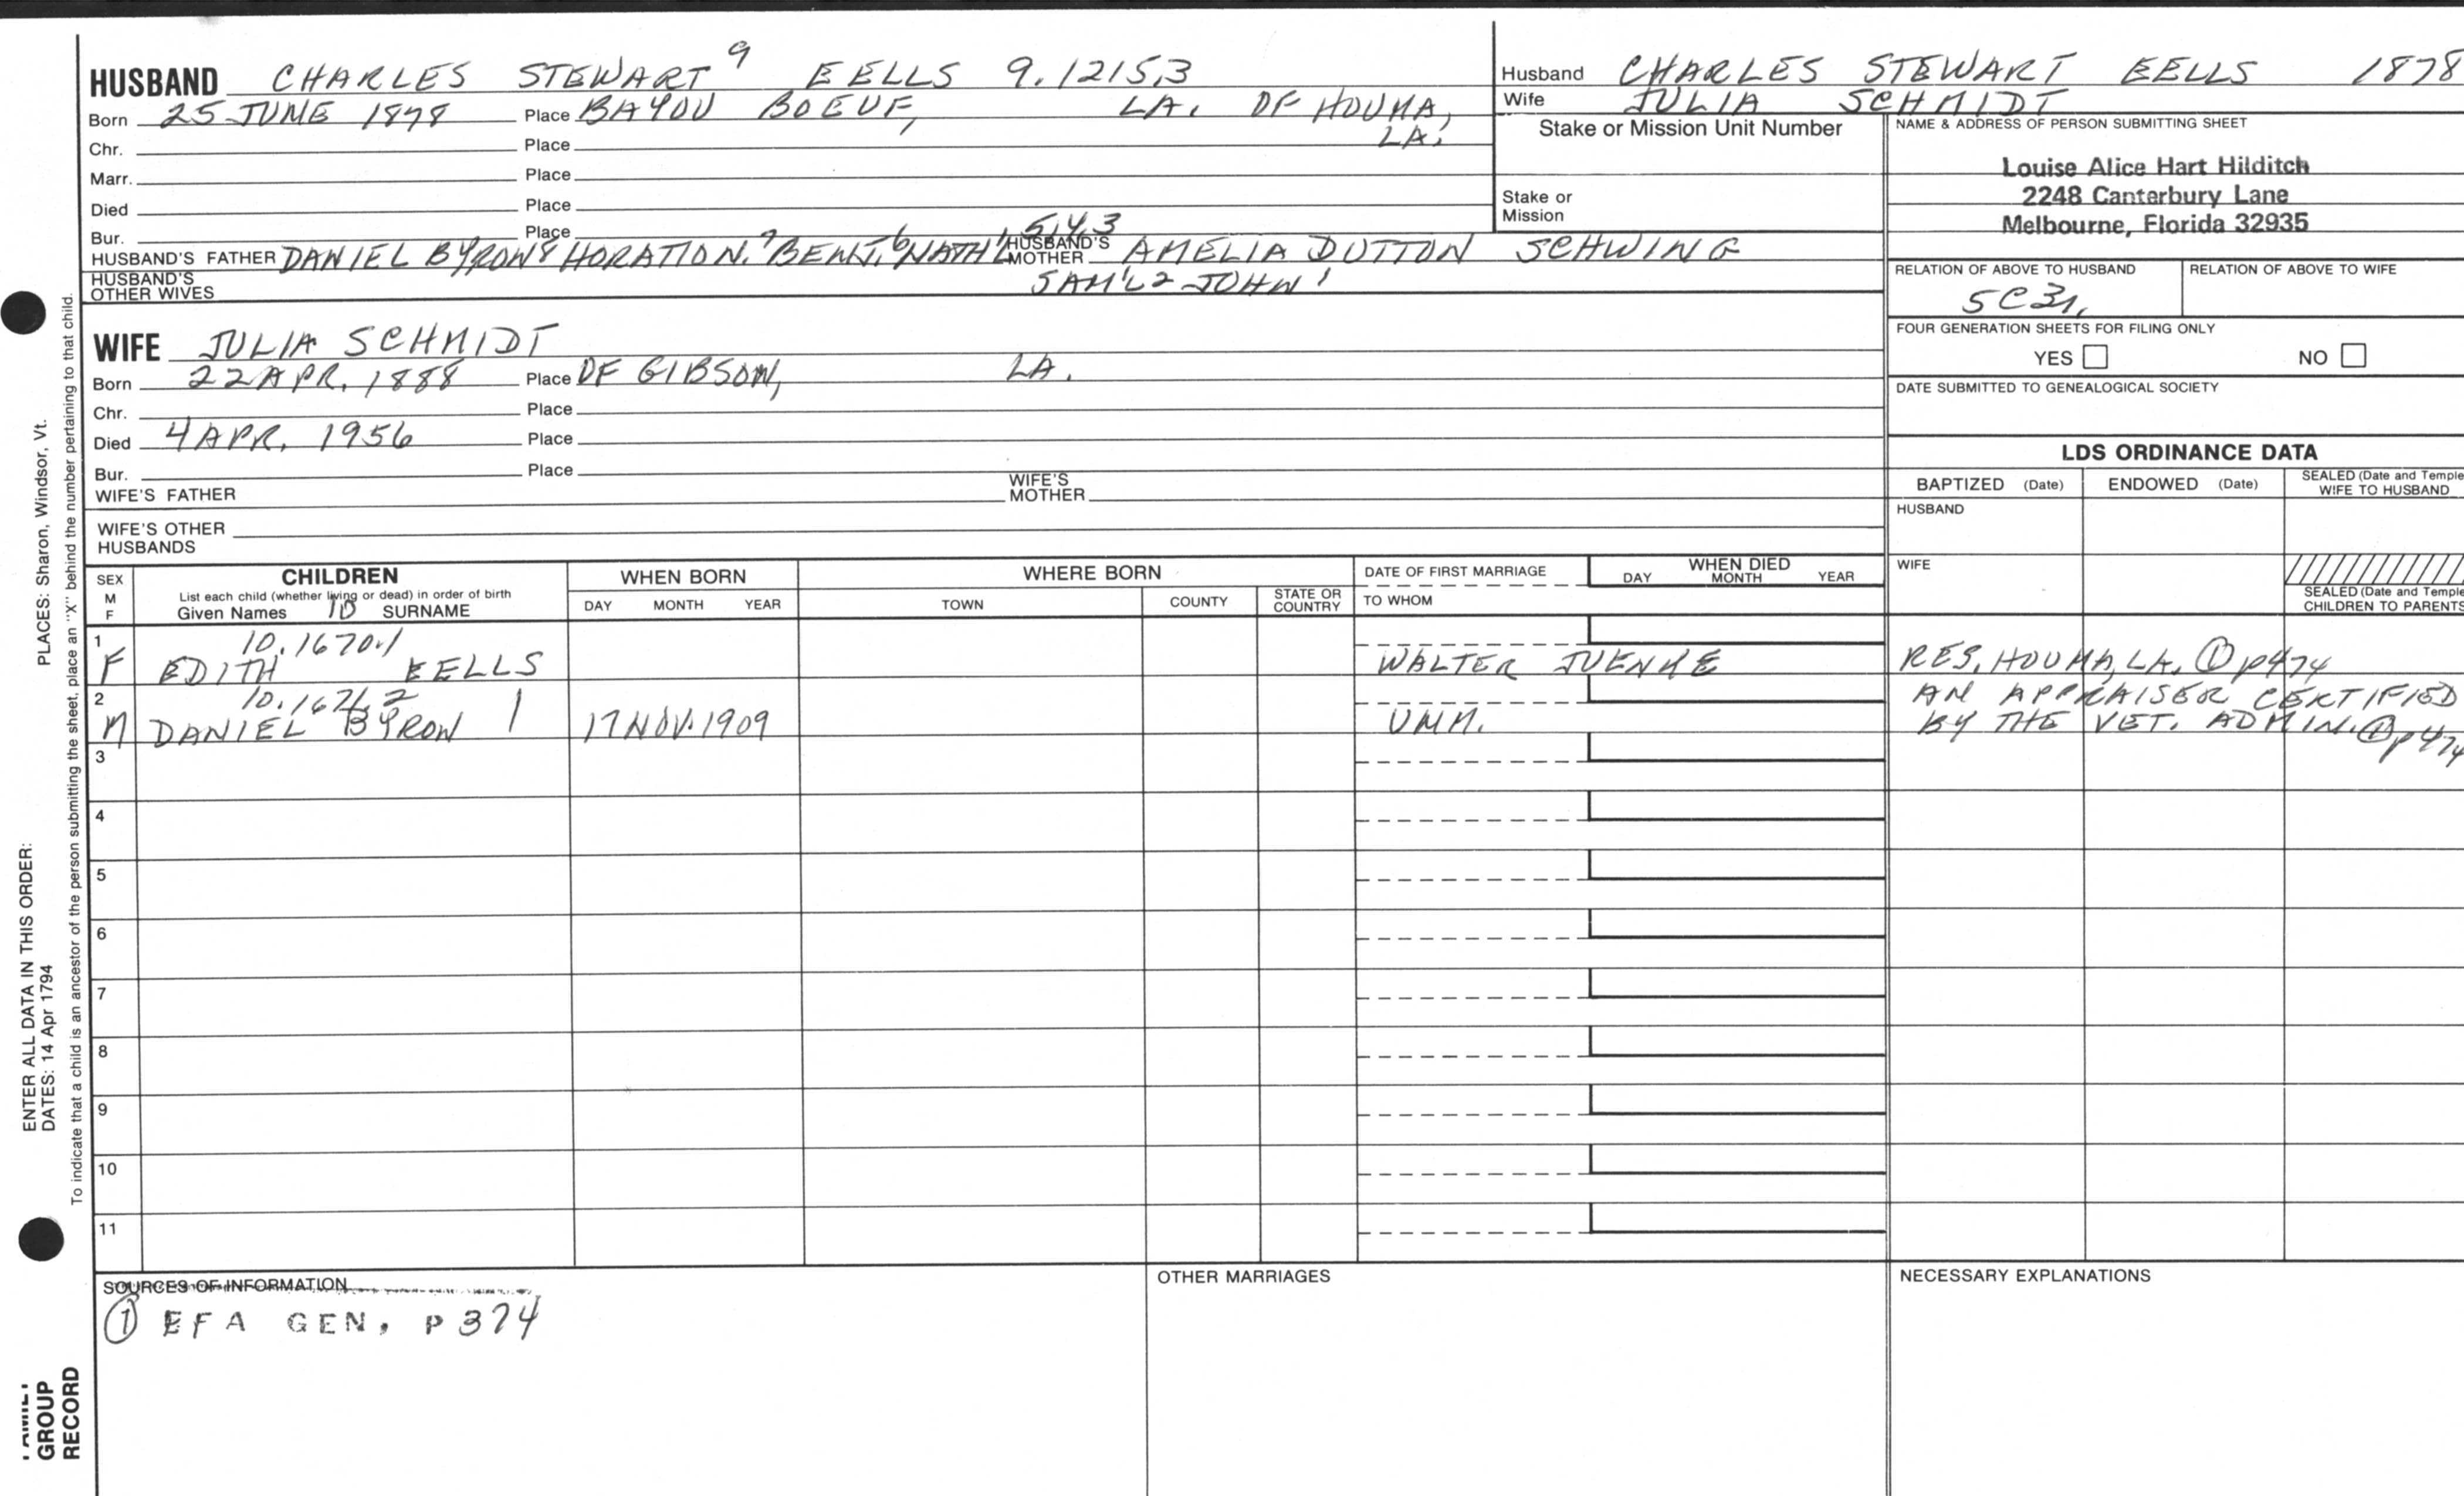 HUSBAND CHARLES STEWART 9 EELLS 9.1215.3
Born 25 JUNE 1878 Place BAYOU BOEUF, LA. OF HOUMA, LA.
Chr. Place
Marr. Place
Died Place
Bur. Place
HUSBAND'S FATHER DANIEL BYRON 8 HORATION. 7 BENJ. 6 NATH'L 5,4,3 HUSBAND'S MOTHER AMELIA DUTTON SCHWING
SAM'L 2 JOHN 1
HUSBAND'S OTHER WIVES
WIFE JULIA SCHMIDT
Born 22 APR. 1888 Place OF GIBSON, LA.
Chr. Place
Died 4 APR. 1956 Place
Bur. Place
WIFE'S FATHER WIFE'S MOTHER
WIFE'S OTHER HUSBANDS
Husband CHARLES STEWART EELLS 1878
Wife JULIA SCHMIDT
Stake or Mission Unit Number
Stake or Mission
NAME & ADDRESS OF PERSON SUBMITTING SHEET
Louise Alice Hart Hilditch
2248 Canterbury Lane
Melbourne, Florida 32935
RELATION OF ABOVE TO HUSBAND RELATION OF ABOVE TO WIFE
5C3r.
FOUR GENERATION SHEETS FOR FILING ONLY
YES NO
DATE SUBMITTED TO GENEALOGICAL SOCIETY
LDS ORDINANCE DATA
BAPTIZED (Date) ENDOWED (Date) SEALED (Date and Temple) WIFE TO HUSBAND
HUSBAND
WIFE
SEALED (Date and Temple) CHILDREN TO PARENTS
SEX M F
CHILDREN
List each child (whether living or dead) in order of birth
Given Names 10 SURNAME
WHEN BORN
DAY MONTH YEAR
WHERE BORN
TOWN COUNTY STATE OR COUNTRY
DATE OF FIRST MARRIAGE
TO WHOM
WHEN DIED
DAY MONTH YEAR
1 10.1670.1
F EDITH EELLS WALTER JUENKE RES. HOUMA, LA. ① p474
2 10.1671.2
M DANIEL BYRON 17 NOV. 1909 UNM. AN APPRAISER CERTIFIED
BY THE VET. ADMIN. ① p474
3
4
5
6
7
8
9
10
11
SOURCES OF INFORMATION
① EFA GEN, P 374
OTHER MARRIAGES
NECESSARY EXPLANATIONS
PLACES: Sharon, Windsor, Vt.
ENTER ALL DATA IN THIS ORDER:
DATES: 14 Apr 1794
To indicate that a child is an ancestor of the person submitting the sheet, place an "X" behind the number pertaining to that child.
FAMILY GROUP RECORD